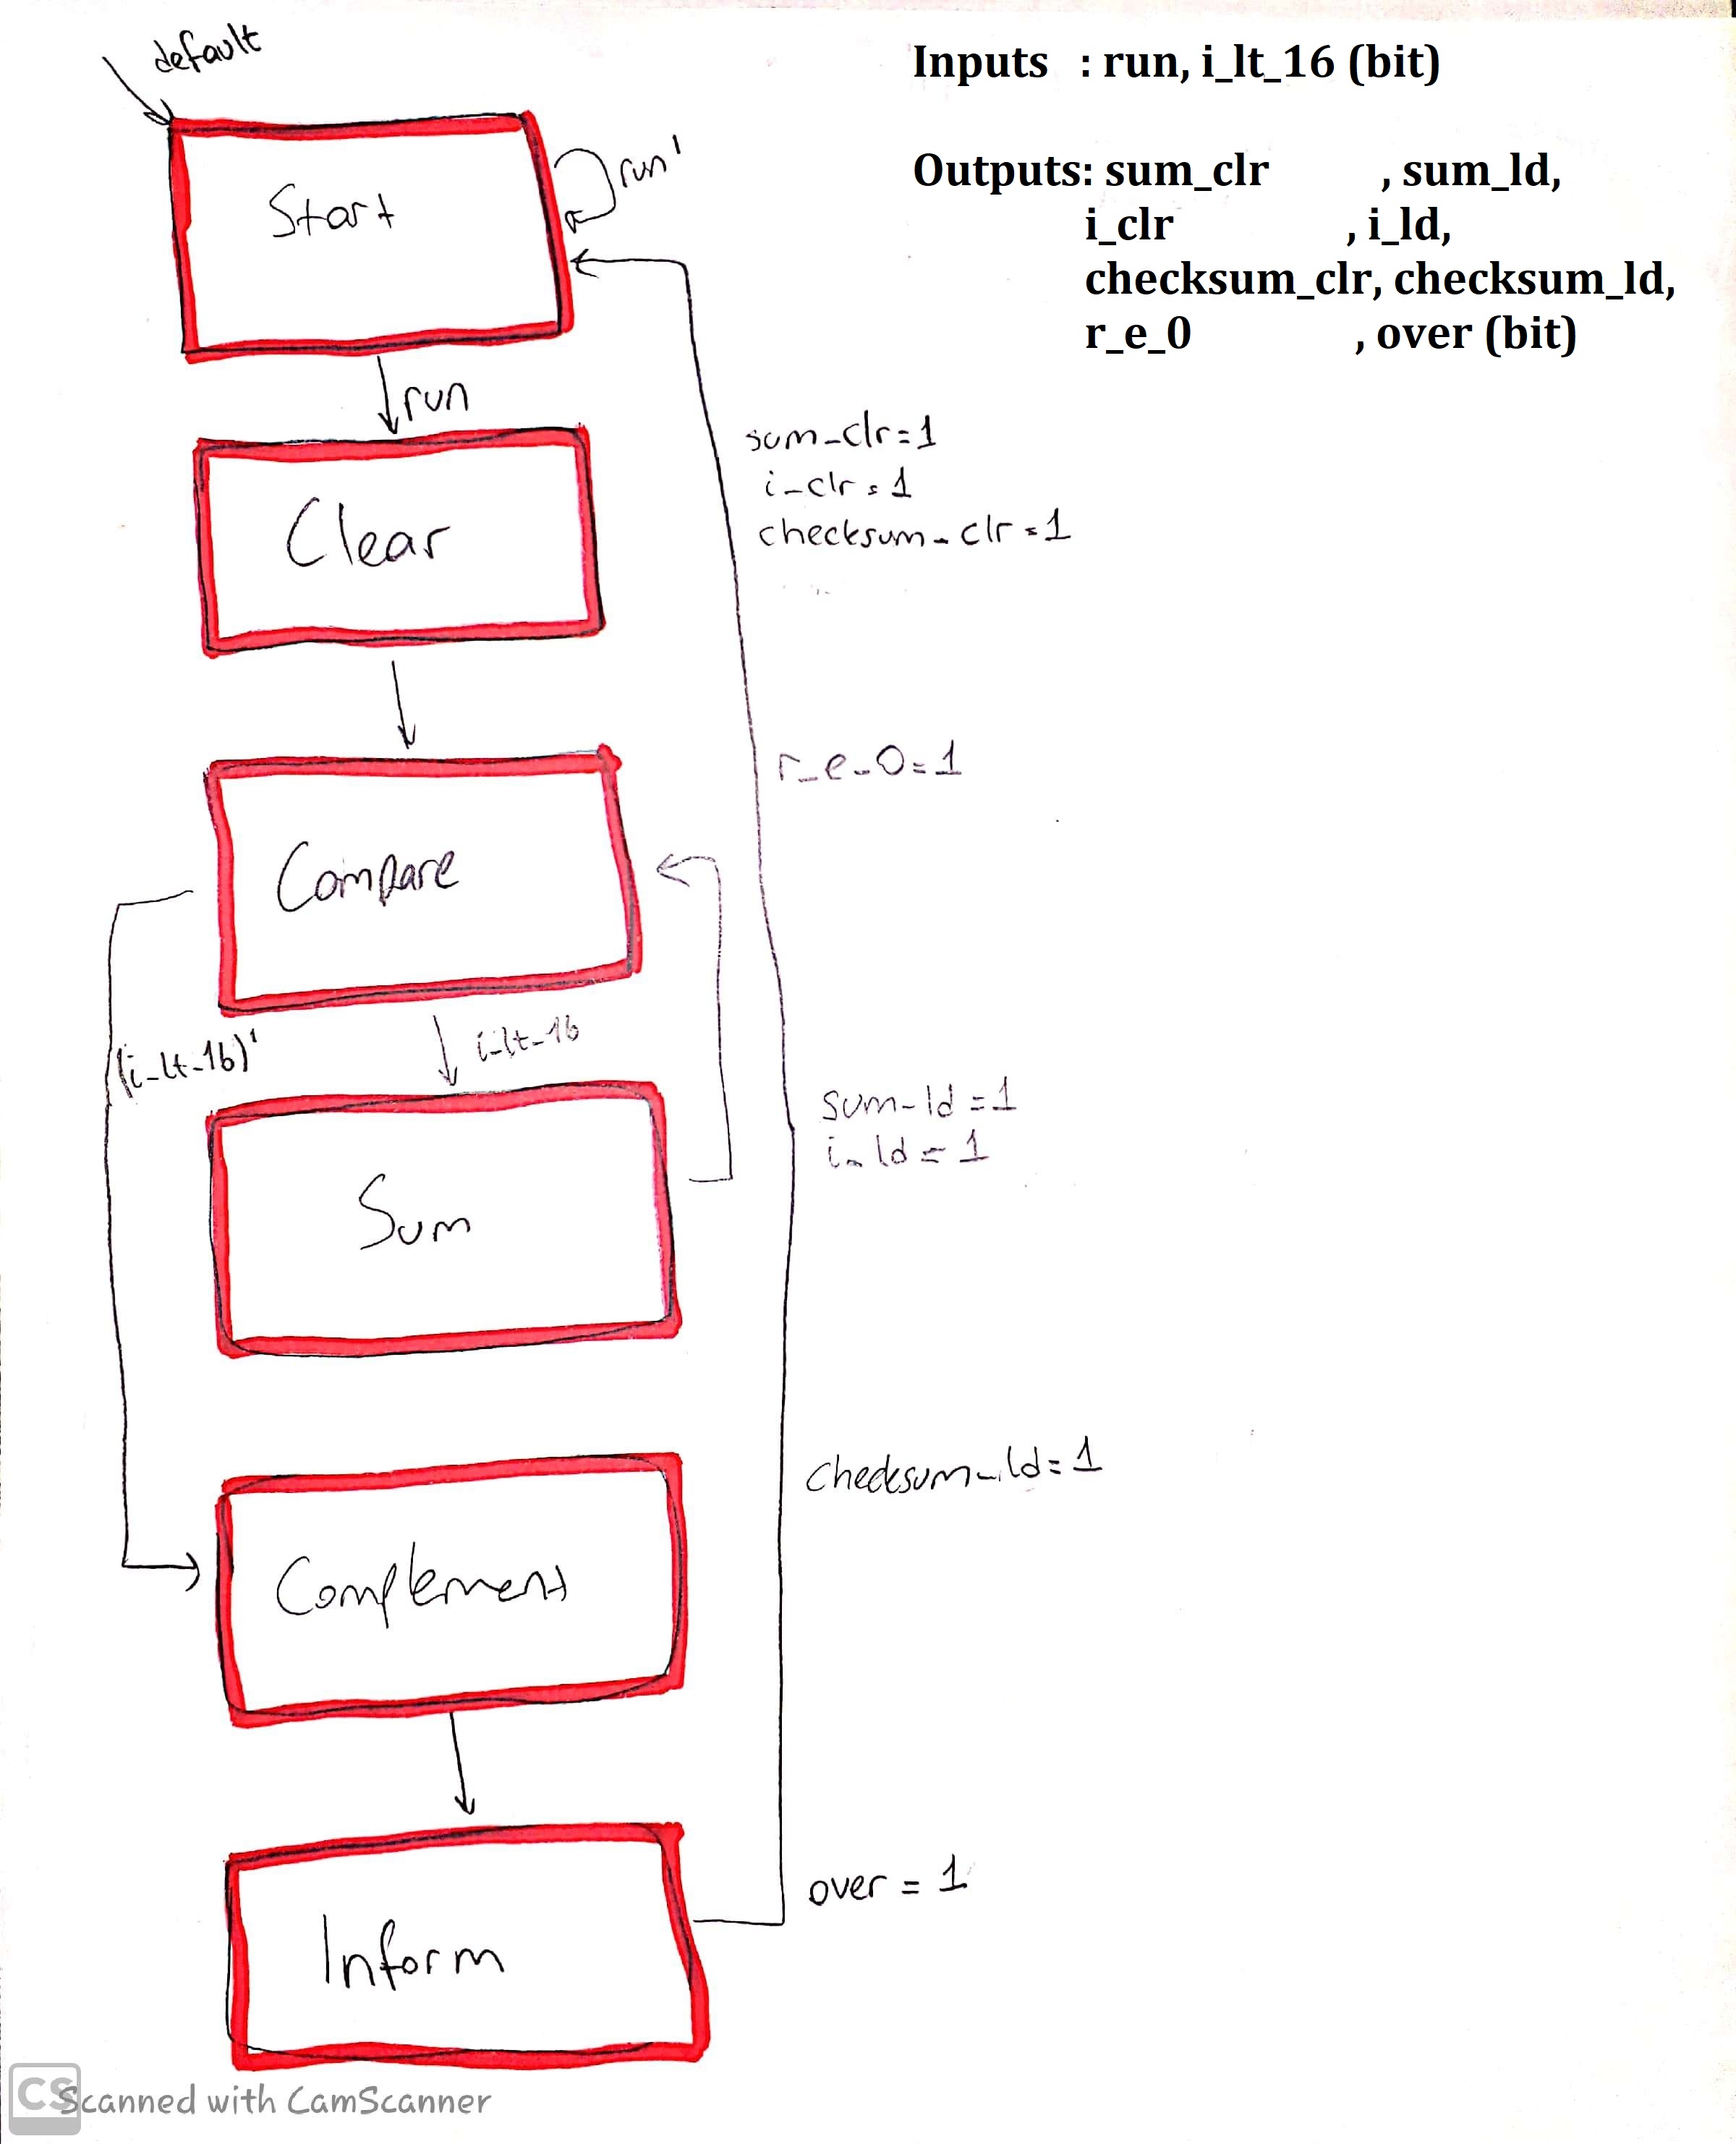 default
Inputs : run, i_lt_16 (bit)
Outputs: sum_clr , sum_ld,
i_clr , i_ld,
checksum_clr, checksum_ld,
r_e_0 , over (bit)
Start
run'
run
sum_clr=1
i_clr=1
checksum_clr=1
Clear
r_e_0=1
Compare
(i_lt_16)'
i_lt_16
sum_ld=1
i_ld=1
Sum
checksum_ld=1
Complement
over = 1
Inform
CS Scanned with CamScanner